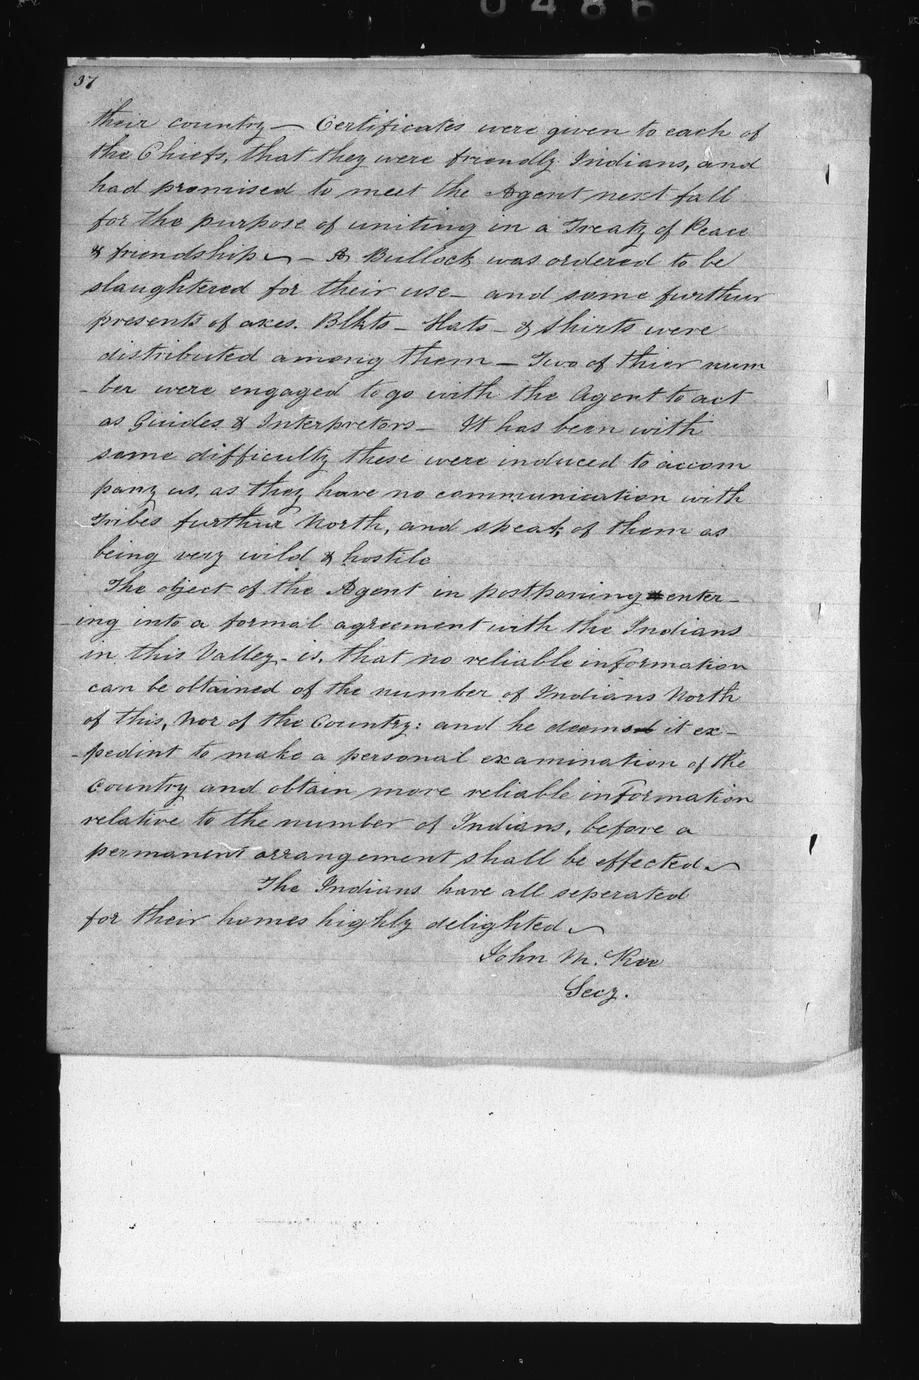 0486
37
their country — Certificates were given to each of
the Chiefs, that they were friendly Indians, and
had promised to meet the Agent next fall
for the purpose of uniting in a Treaty of Peace
& friendship — A Bullock was ordered to be
slaughtered for their use — and some furthur
presents of axes. Blkts — Hats — & Shirts were
distributed among them — Two of thier num
-ber were engaged to go with the Agent to act
as Guides & Interpretors — It has been with
some difficulty these were induced to accom
pany us, as they have no communication with
Tribes furthur North, and speak of them as
being very wild & hostile
The object of the Agent in postponing enter-
-ing into a formal agreement with the Indians
in this Valley — is, that no reliable information
can be obtained of the number of Indians North
of this, Nor of the Country: and he deemed it ex-
-pedint to make a personal examination of the
Country and obtain more reliable information
relative to the number of Indians, before a
permanent arrangement shall be effected.
The Indians have all seperated
for their homes highly delighted.
John M. Kee
Secy.